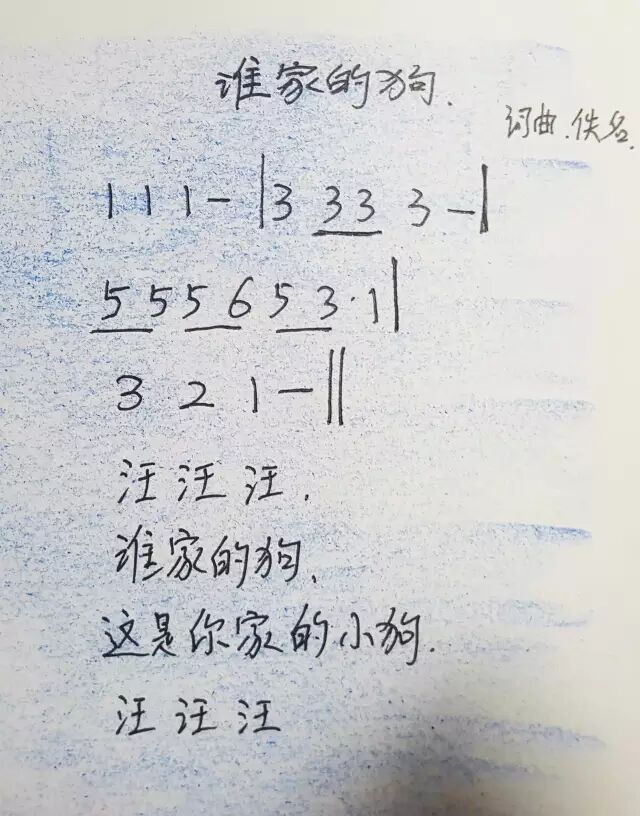 谁家的狗.
词曲.佚名.
1 1 1 - | 3 3 3 3 - |
5 5 5 6 5 3 · 1 |
3 2 1 - ||
汪 汪 汪.
谁家的狗.
这是你家的小狗.
汪 汪 汪